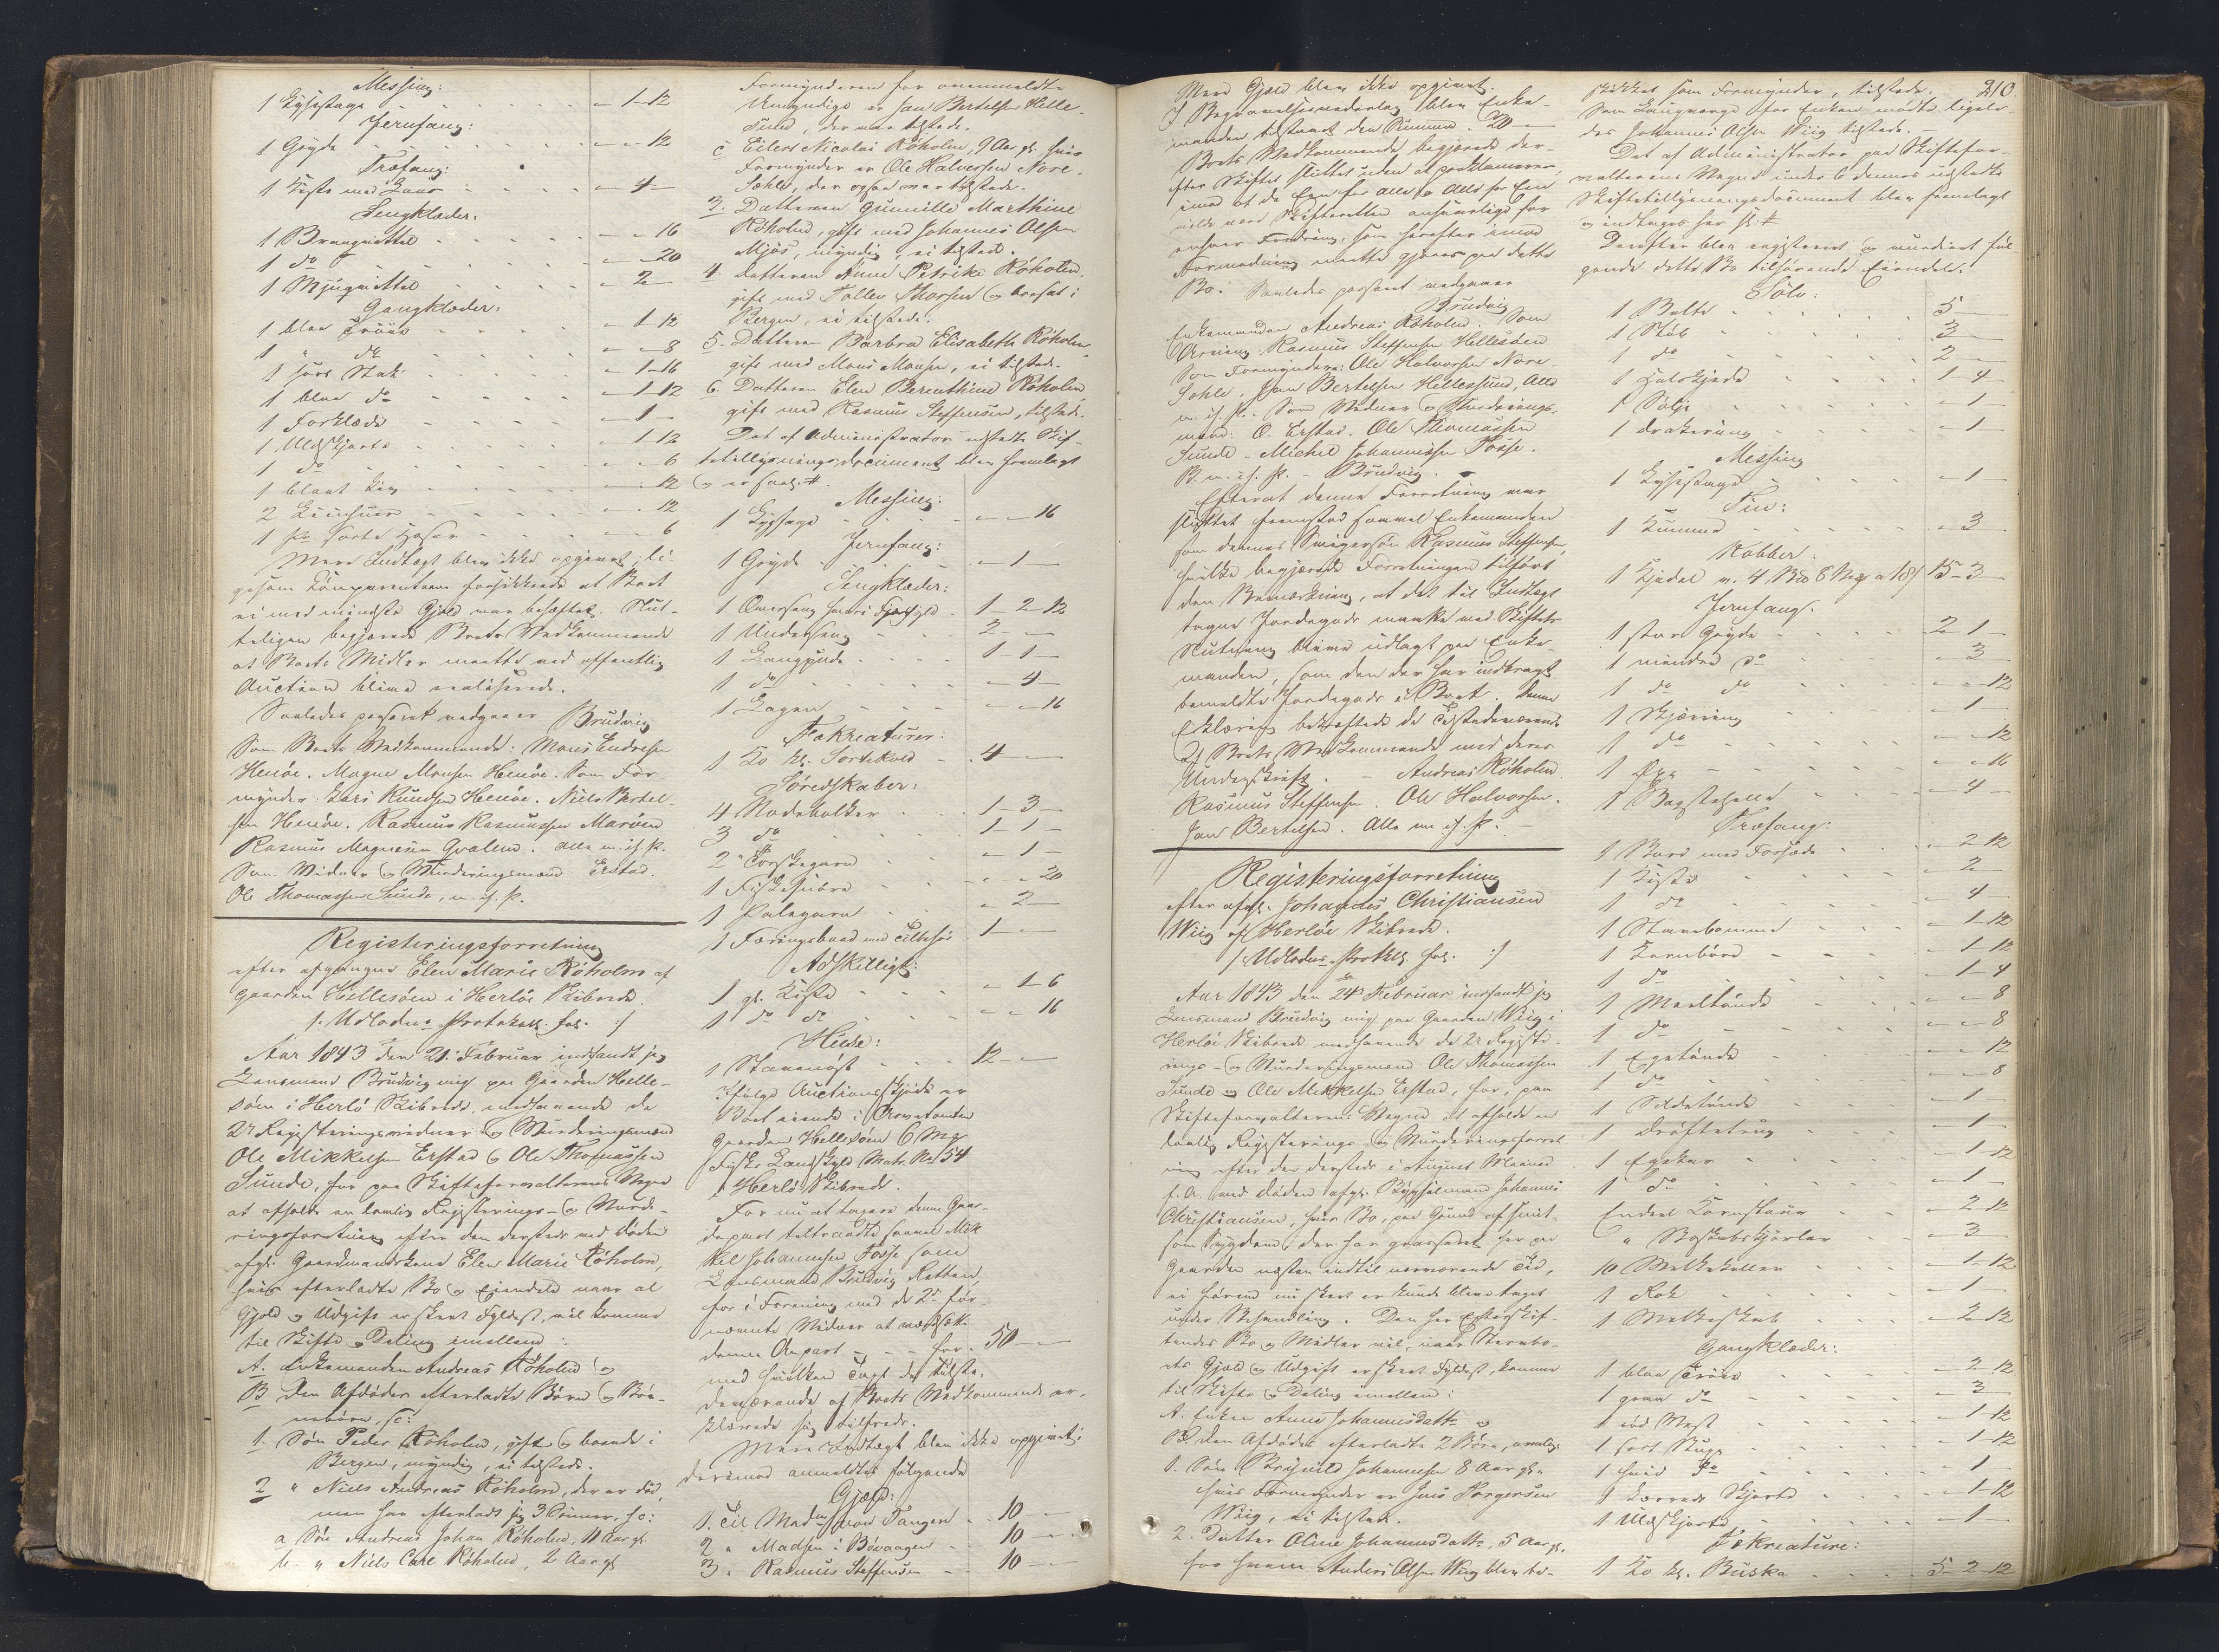 Messing:
1 Lysestage - 1 - 12
Jernfang:
1 Gryde - - 12
Træfang:
1 Kiste med Laas - 4 -
Sengklæder:
1 Braatquittel - - 16
1 do - - 20
1 - 2 -
Gangklæder:
1 blaa Trøie - 1 - 12
1 " do - - 8
1 sort Stak - 1 - 16
1 blaa do - 1 - 12
1 Forklæde - 1 -
1 Uldskjorte - 1 - 12
1 do - - 6
1 blaat Liv - - 12
2 - - 12
1 pr sorte Hoser - - 6
Mere Indtægt blev ikke opgivet, li-
gesom Comparenterne forsikkrede at Boet
ei med mindste Gjeld var behæftet. Slut-
teligen begjærede Boets Vedkommende
at Boets Midler maatte ved offentlig
Auction blive realiserede.
Saaledes passeret vedgaaer Brudvig
Som Boets Vedkommende: Mons Endresen
Henøe. Magne Monsen Henøe. Som For-
mynder: Lars Knudsen Henøe. Niels Bertel-
sen Henøe. Rasmus Rasmussen Marøen
Rasmus Magnesen Qvalen. Alle m. i. P.
Som Vidner og Vurderingsmænd Erstad.
Ole Thomassen Sunde, m. i. P.
Registeringsforretning
efter afgangne Elen Marie Røholm af
Gaarden Hellesøen i Herløe Skibrede.
/: Udlodn: Protokoll. fol. :/
Aar 1843 den 21. Februar indfandt jeg
Lensmand Brudvig mig paa Gaarden Helle-
søen i Herlø Skibrede medhavende de
2de Registeringsvidner og Vurderingsmænd
Ole Mikkelsen Erstad og Ole Thomassen
Sunde, for paa Skifteforvalterens Vegne
at afholde en lovlig Registerings- og Vurde-
ringsforretning efter den derstede ved Døden
afgl. Gaardmandskone Elen Marie Røholm,
hvis efterladte Bo og Eiendele naar al
Gjeld og Udgift er skeet Fyldest, vil komme
til Skifte og Deling imellem:
A. Enkemanden Andreas Røholm og
B. Den Afdødes efterladte Børn og Bør-
nebørn, so:
1. Søn Peder Røholm, gift og boende i
Bergen, myndig, ei tilstede.
2 " Niels Andreas Røholm, der er død,
men har efterladt sig 3 Sønner, so:
a Søn Andreas Johan Røholm, 11 Aar gl.
b. " Niels Carl Røholm, 2 Aar gl
Formynderen for ovenmeldte
Umyndige er Jan Bertelsen Helle-
sund, der var tilstede.
c Eilert Nicolai Røholm, 9 Aar gl. hvis
Formynder er Ole Halvorsen Nore
Sæhle, der ogsaa var tilstede.
3. Datteren Gunnille Marthine
Røholm, gift med Johannes Olsen
Mjøs, myndig, ei tilstede.
4. Datteren Anne Petrike Røholm,
gift med Tollev Thorsen og bosat i
Bergen, ei tilstede.
5. Datteren Barbra Elisabeth Røholm,
gift med Mons Monsen, ei tilstede.
6. Datteren Elen Berenthine Røholm
gift med Rasmus Steffensen, tilstede.
Det af Administrator udstedte Skif-
tetillysningsdocument blev fremlagt
og er saal. #.
Messing:
1 Lysestage - - 16
Jernfang:
1 Gryde - 1 -
Sengklæder:
1 Overseng 1 - 2 - 12
1 Underseng 2 - -
1 Langpude 1 - 1 -
1 do - 4 -
1 Lagen - - 16
Fækreaturer:
1 Ko kl. Sortekold 4 -
Søredskaber:
4 Nodebolker 1 - 3 -
3 do 1 - 1 -
2 Torskegarn - 1 -
1 Fiskesnøre - - 20
1 Palegarn - 2 -
1 Færingsbaad med Tilbehør 1 - -
Adskilligt:
1 gl. Kiste - 1 - 6
1 do do - - 16
Huse:
1 Stavnøst 12 - -
Ifølge Auctionsskjøde er
Boet eiende i Arvetomten
Gaarden Hellesøen 6 Mrk
Fiske Landskyld Matr. No 54
i Herlø Skibrede.
For nu at taxere denne Gaar-
depart tiltraadte saavel Mik-
kel Johannesen Fosse som
Lensmand Brudvig Retten,
for i Forening med de 2de før-
nævnte Vidner at værdsætte
denne Anpart - - for. 50 - -
med hvilken Taxt de tilste-
deværende af Boets Vedkommende er-
klærede sig tilfreds.
Mere Indtægt blev ikke opgivet;
derimod anmeldtes følgende
Gjeld:
1. Til Madm. von Tangen 10 - -
2 " Madsen i Bøvaagen 10 - -
3. " Rasmus Steffensen 10 - -
Mere Gjeld blev ikke opgivet.
I Begravelsesvederlag blev Enke-
manden tilstaaet den Summa 20 -
Boets Vedkommende begjærede der-
efter Skiftet sluttet uden at proklameres
imod at de Een for Alle og Alle for Een
vilde være Skifteretten ansvarlige for
enhver Fordring, som herefter imod
Formodning maatte gjøres paa dette
Bo. Saaledes passeret vedgaaer
Brudvig
Enkemanden Andreas Røholm. Som
Arving: Rasmus Steffensen Hellesøen
Som Formyndere: Ole Halvorsen Nore
Sæhle, Jan Bertelsen Hellesund, Alle
m. i. P. Som Vidner og Vurderings-
mænd: O. Erstad. Ole Thomassen
Sunde - Michel Johannessen Fosse.
B. m. i. P. - Brudvig. -
Efterat denne Forretning var
sluttet fremstod saavel Enkemanden
som dennes Svigersøn Rasmus Steffensen,
hvilke begjærede Forretningen tilført
den Bemærkning, at det til Indtægt
tagne Jordegods maatte ved Skiftets
Slutning blive udlagt paa Enke-
manden, som den der har indbragt
bemeldte Jordegods i Boet. Denne
Erklæring bekræftede de Tilstedeværende
af Boets Vedkommende med deres
Underskrift. - Andreas Røholm.
Rasmus Steffensen. Ole Halvorsen.
Jan Bertelsen. Alle m. i. P. -
Registeringsforretning
efter afgl. Johannes Christiansen
Wiig af Herløe Skibrede.
/: Udlodns Protkll. fol. :/
Aar 1843 den 24de Februar indfandt jeg
Lensmand Brudvig mig paa Gaarden Wiig i
Herløe Skibrede medhavende de 2de Registe-
rings- og Vurderingsmænd Ole Thomassen
Sunde og Ole Mikkelsen Erstad, for, paa
Skifteforvalterens Vegne at afholde en
lovlig Registerings- og Vurderingsforret-
ning efter den derstede i August Maaned
f. A. ved Døden afgl. Bygselmand Johannes
Christiansen, hvis Bo, paa Grund af smit-
som Sygdom, der har grasseret her paa
Gaarden næsten indtil nærværende Tid,
ei førend nu skeet er kunde blive taget
under Behandling. Den her Efterskif-
tendes Bo og Midler vil, naar Sterbbo-
ets Gjeld og Udgift er skeet Fyldest, komme
til Skifte og Deling imellem:
A. Enken Anne Johannesdatter og
B. Den Afdødes efterladte 2 Børn, nemlig:
1. Søn Brynild Johannesen 8 Aar gl.
hvis Formynder er Jens Torgersen
Wiig, ei tilstede.
2. Datter Oline Johannesdatter, 5 Aar gl.
for hvem Anders Olsen Wiig blev be-
210.
skikket som Formynder, tilstede.
Som Laugværge for Enken mødte ligele-
des Johannes Olsen Wiig tilstede. -
Det af Administrator paa Skiftefor-
valterens Vegne under 6 dennes udstedte
Skiftetillysningsdocument blev fremlagt
og indtages her sl. #
Derefter blev registeret og vurderet føl-
gende dette Bo tilhørende Eiendele:
Sølv:
1 Belte 5 -
1 Støb 3 -
1 do 2 -
1 Halskjæde 1 - 4 -
1 Sølje - 1 -
1 - 1 -
Messing
1 Lysestage - 1 -
Tin:
1 - 3
Kobber.
1 Kjedel v. 4 Bpd 6 Mrk a 18 s 15 - 3 -
Jernfang.
1 stor Gryde 2 - 1 -
1 mindre do - 3 -
1 do do - - 12
1 Skjæring - 1 -
1 do - - 12
1 Øxe - - 16
1 Bagstehelle - 4 -
Træfang:
1 Bord med Forsæde - 2 - 12
1 Kiste - 2 -
1 do - 4
1 - 1 - 12
1 Kornbøre - 1 - 12
1 do - 1 - 4
1 Meeltønde - - 8
1 do - - 8
1 Egetønde - - 12
1 do - - 8
1 Sildetønde - 1 -
1 Drøftetrug - 1 -
1 Egekar - 1 - 12
1 do - 1 -
Endeel Kornstaur - 2 - 12
" Boskabskjørler - 3 -
10 Melkekoller - 1 - 12
1 Rok - 1 -
1 Melkeskab - 2 - 12
Gangklæder:
1 blaa Trøie - 2 - 12
1 graa do - 3 -
1 rød Vest - 1 - 12
1 sort Buxe - 1 - 12
1 hvid do - 1 -
1 Lærreds Skjorte - 1 - 12
1 Uldskjorte - 1 -
Fækreature:
1 Ko kl. Buska 5 - 2 - 12